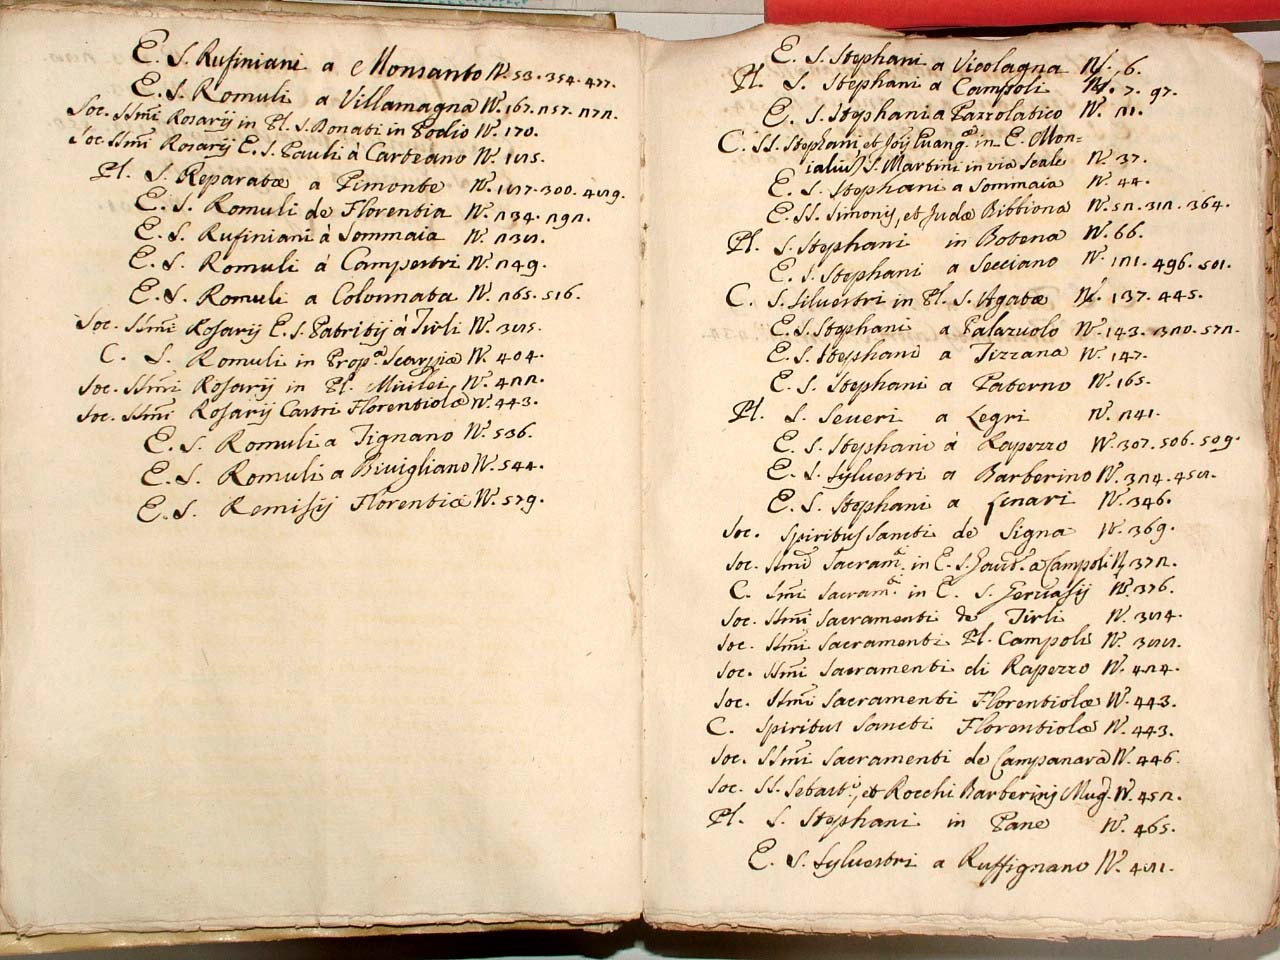 E. S. Rufiniani a Monsanto N. 53. 354. 477.
E. S. Romuli a Villamagna N. 167. 257. 272.
Soc. SSmi Rosarij in Pl. S. Donati in Podio N. 170.
Soc. SSmi Rosarij E. S. Pauli à Carteano N. 185.
Pl. S. Reparatæ a Pimonte N. 187. 300. 489.
E. S. Romuli de Florentia N. 234. 292.
E. S. Rufiniani à Sommaia N. 238.
E. S. Romuli à Campestri N. 249.
E. S. Romuli a Colonnata N. 265. 516.
Soc. SSmi Rosarij E. S. Patritij à Tirli N. 385.
C. S. Romuli in Prop.a Scarpiæ N. 404.
Soc. SSmi Rosarij in Pl. N. 422.
Soc. SSmi Rosarij Castri Florentiolæ N. 443.
E. S. Romuli a Tignano N. 536.
E. S. Romuli a Bivigliano N. 544.
E. S. Remisij Florentiæ N. 579.
E. S. Stephani a Vicolagna N. 6.
Pl. S. Stephani a Campoli N. 7. 97.
E. S. Stephani a Pazzolatico N. 21.
C. SS. Stephani, et Joij Euang.æ in E. Mon=
ialiũ S. Martini in via Scale N. 37.
E. S. Stephani a Sommaia N. 44.
E. SS. Simonis, et Judæ Bibbiona N. 52. 312. 364.
Pl. S. Stephani in Botena N. 66.
E. S. Stephani a Secciano N. 121. 496. 501.
C. S. Silvestri in Pl. S. Agatæ N. 137. 445.
E. S. Stephani a Palazuolo N. 143. 320. 572.
E. S. Stephani a Tizzana N. 147.
E. S. Stephani a Paterno N. 165.
Pl. S. Seueri a Legri N. 241.
E. S. Stephani à Rapezzo N. 307. 506. 509.
E. S. Sylvestri a Barberino N. 324. 458.
E. S. Stephani a Lenari N. 346.
Soc. Spiritus Sancti de Signa N. 369.
Soc. SSmi Sacram.ti in E. S. Gaud.i a Campoli N. 372.
C. Smi Sacram.ti in E. S. Gervasij N. 376.
Soc. SSmi Sacramenti de Tirli N. 384.
Soc. SSmi Sacramenti Pl. Campoli N. 388.
Soc. SSmi Sacramenti di Rapezzo N. 424.
Soc. SSmi Sacramenti Florentiolæ N. 443.
C. Spiritus Sancti Florentiolæ N. 443.
Soc. SSmi Sacramenti de Campanara N. 446.
Soc. SS. Sebast.i, et Rocchi Barberinij Mug. N. 452.
Pl. S. Stephani in Pane N. 465.
E. S. Sylvestri a Ruffignano N. 481.